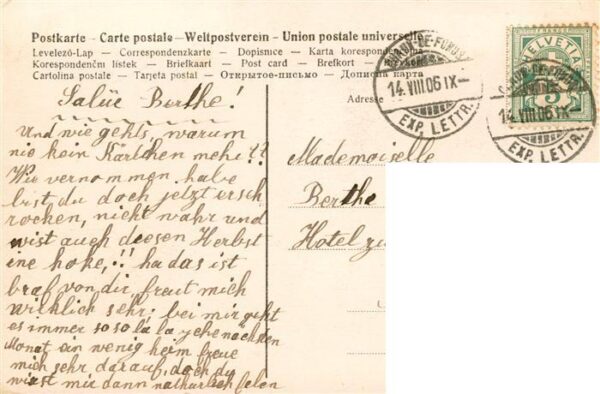 Postkarte - Carte postale - Weltpostverein - Union postale universelle
Levelező-Lap — Correspondenzkarte — Dopisnice — Karta korespondencyjna
Korespondenční lístek — Briefkaart — Post card — Brefkort — Brevkort
Cartolina postale — Tarjeta postal — Открытое письмо — Дописна карта
Adresse
CHAUX-DE-FONDS
14.VIII.06 IX—
EXP. LETTR.
HELVETIA
5
CHAUX-DE-FONDS
14.VIII.06 IX—
EXP. LETTR.
Salüe Berthe!
Und wie gehts, warum
nie kein Kärlchen mehr??
Wie vernommen habe
bist du doch jetzt ersch
rocken, nicht wahr und
wist auch deesen Herbst
ine hoke,!! ha das ist
braf von dir, freut mich
wirklich sehr; bei mir geht
es immer so so la la gehe nächsten
Monat ein wenig heim freue
mich sehr darauf, doch du
wirst mir dann natürlich felen
Mademoiselle
Berthe
Hotel zu